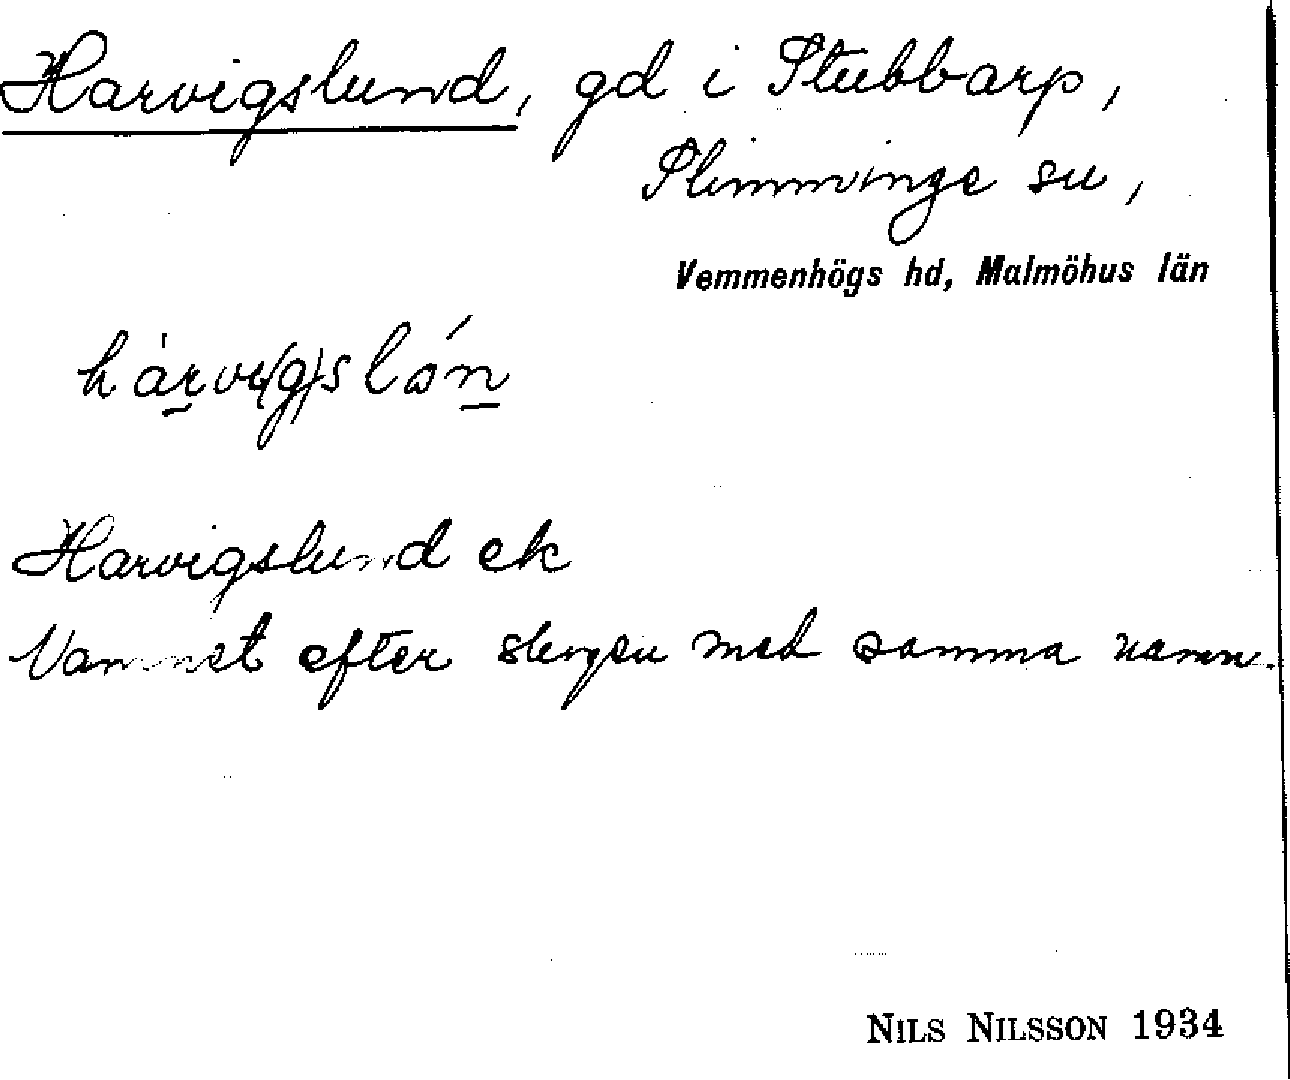 Harvigslund, gd i Stubbarp,
Slimminge sn,
Vemmenhögs hd, Malmöhus län
Harvigslund ek
Namnet efter skogen med samma namn.
NILS NILSSON 1934